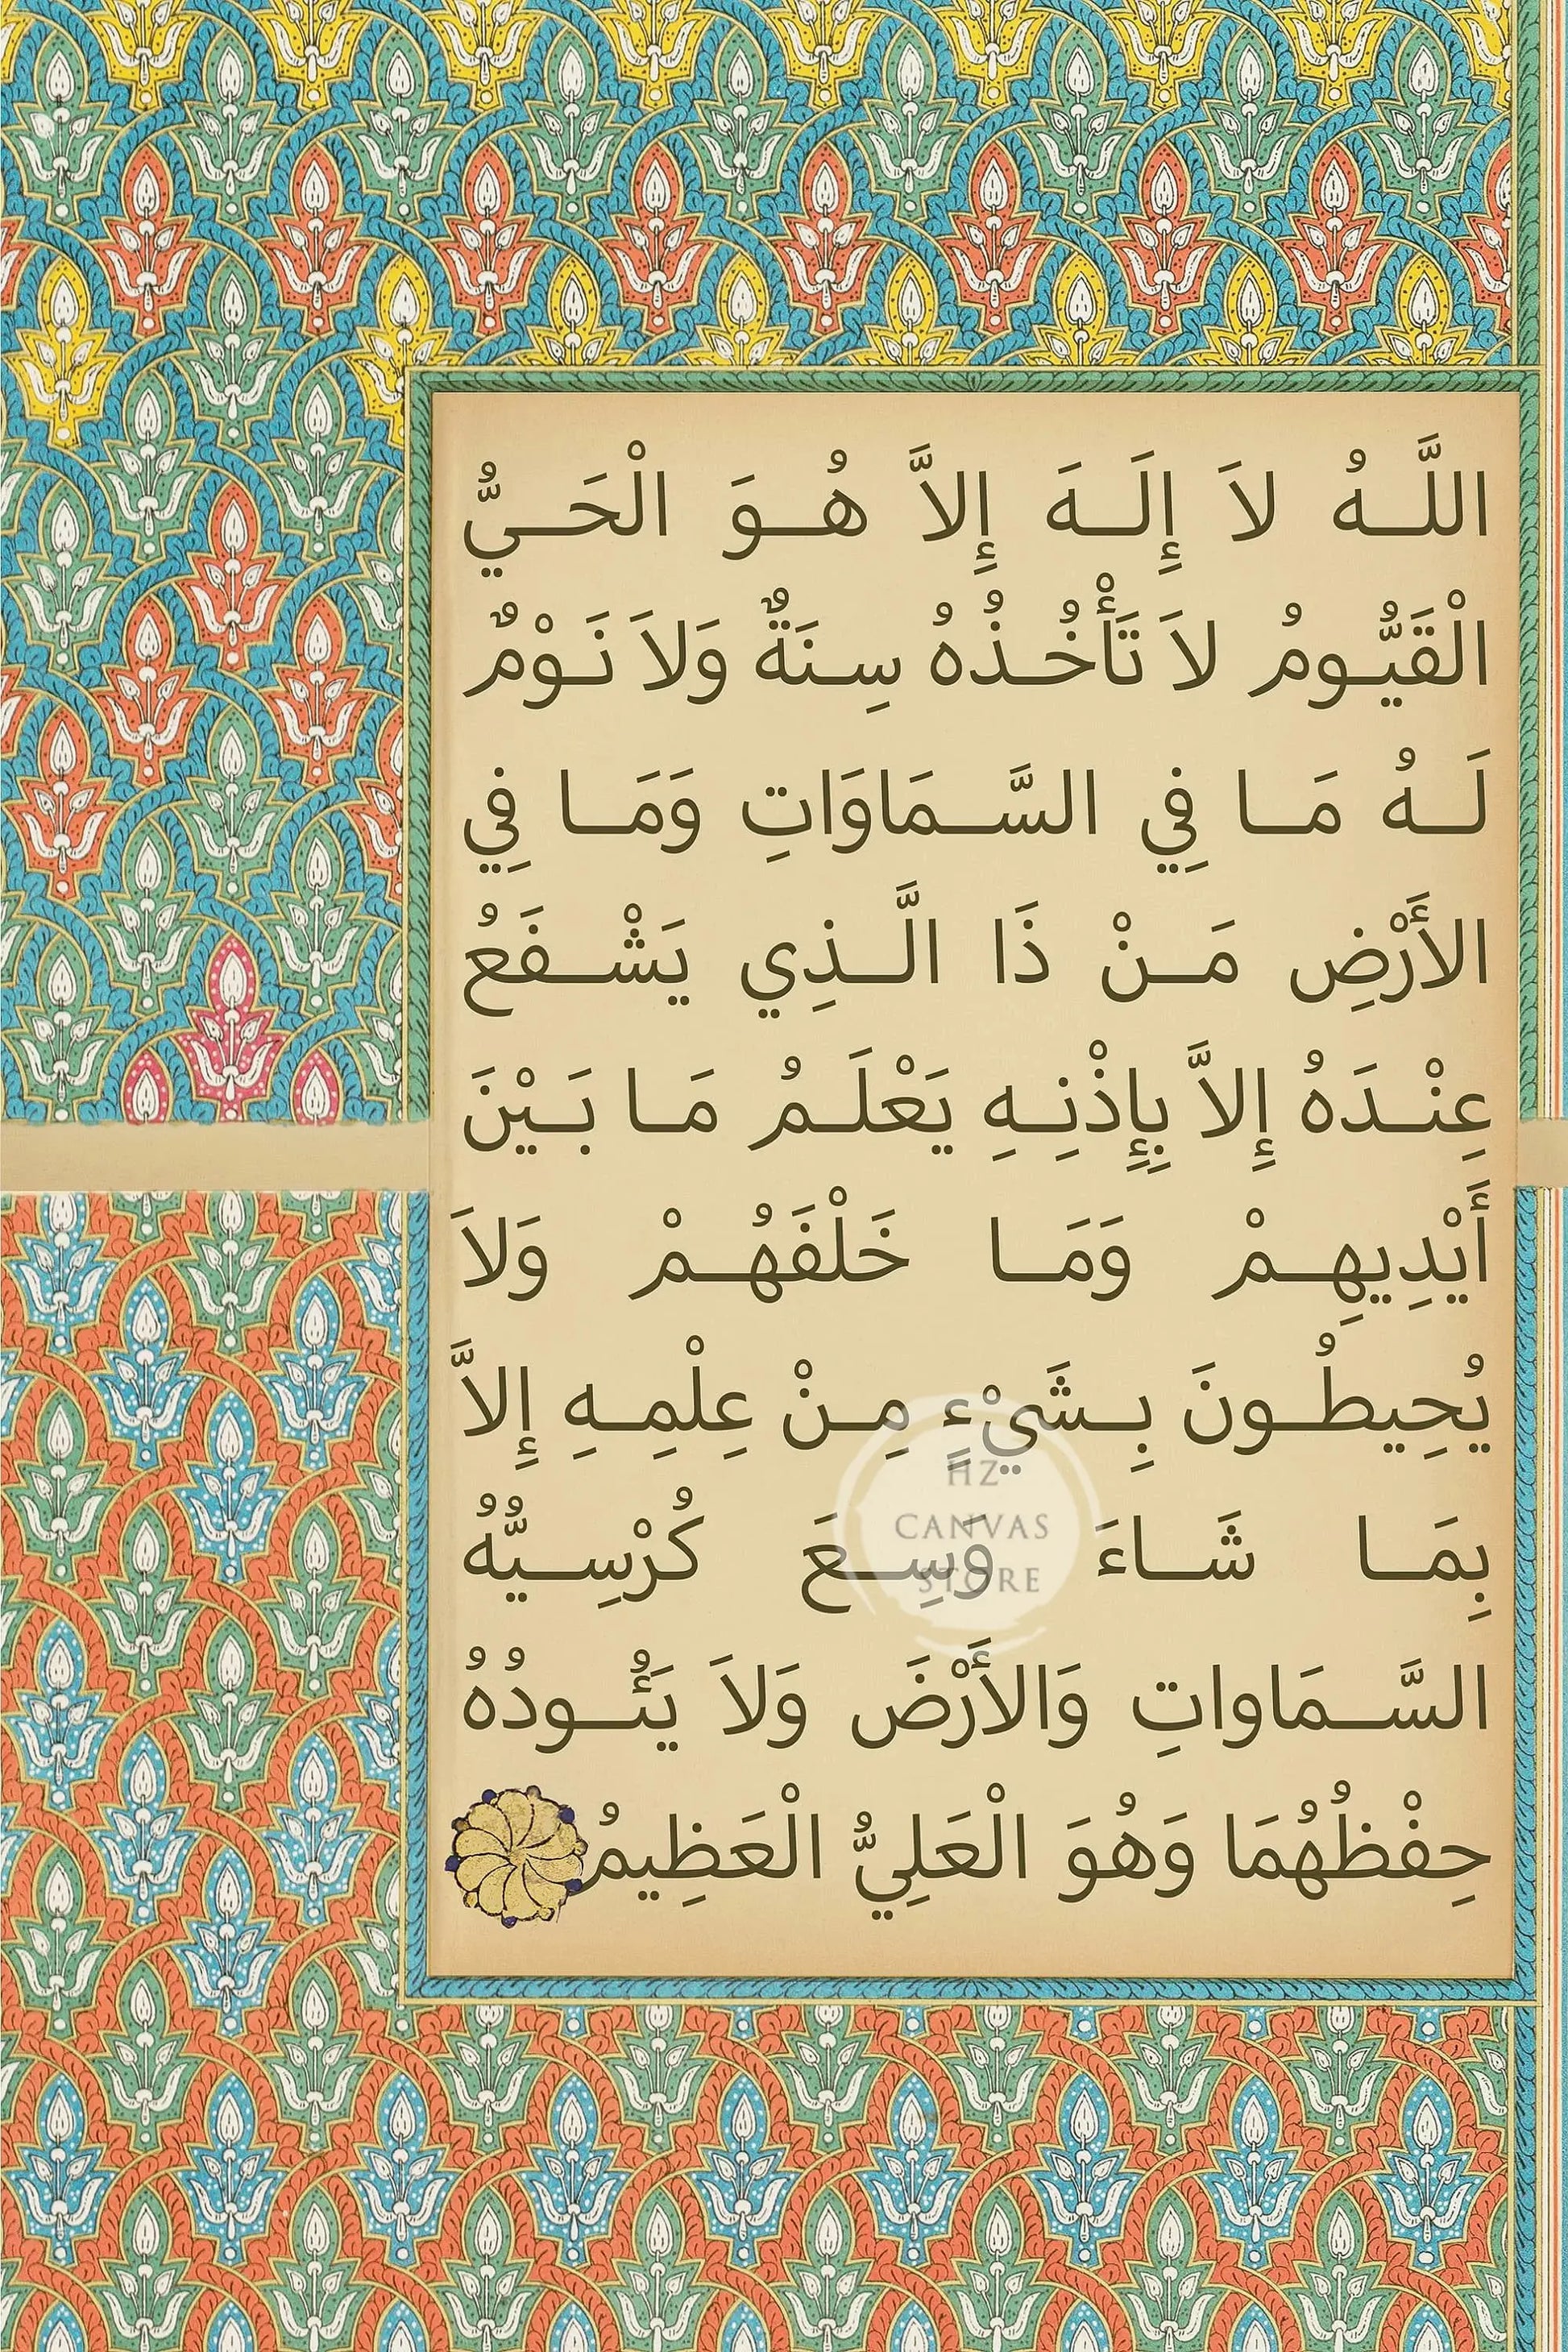 اللَّـهُ لاَ إِلَـهَ إِلاَّ هُـوَ الْحَـيُّ
الْقَيُّـومُ لاَ تَأْخُـذُهُ سِـنَةٌ وَلاَ نَـوْمٌ
لَـهُ مَـا فِي السَّـمَاوَاتِ وَمَـا فِي
الأَرْضِ مَـنْ ذَا الَّـذِي يَشْـفَعُ
عِنْـدَهُ إِلاَّ بِإِذْنِـهِ يَعْلَـمُ مَـا بَـيْنَ
أَيْدِيهِـمْ وَمَـا خَلْفَهُـمْ وَلاَ
يُحِيطُـونَ بِـشَيْءٍ مِـنْ عِلْمِـهِ إِلاَّ
بِمَـا شَـاءَ وَسِـعَ كُرْسِـيُّهُ
السَّـمَاواتِ وَالأَرْضَ وَلاَ يَئُـودُهُ
حِفْظُهُمَا وَهُوَ الْعَلِيُّ الْعَظِيمُ
HZ
CANVAS
STORE